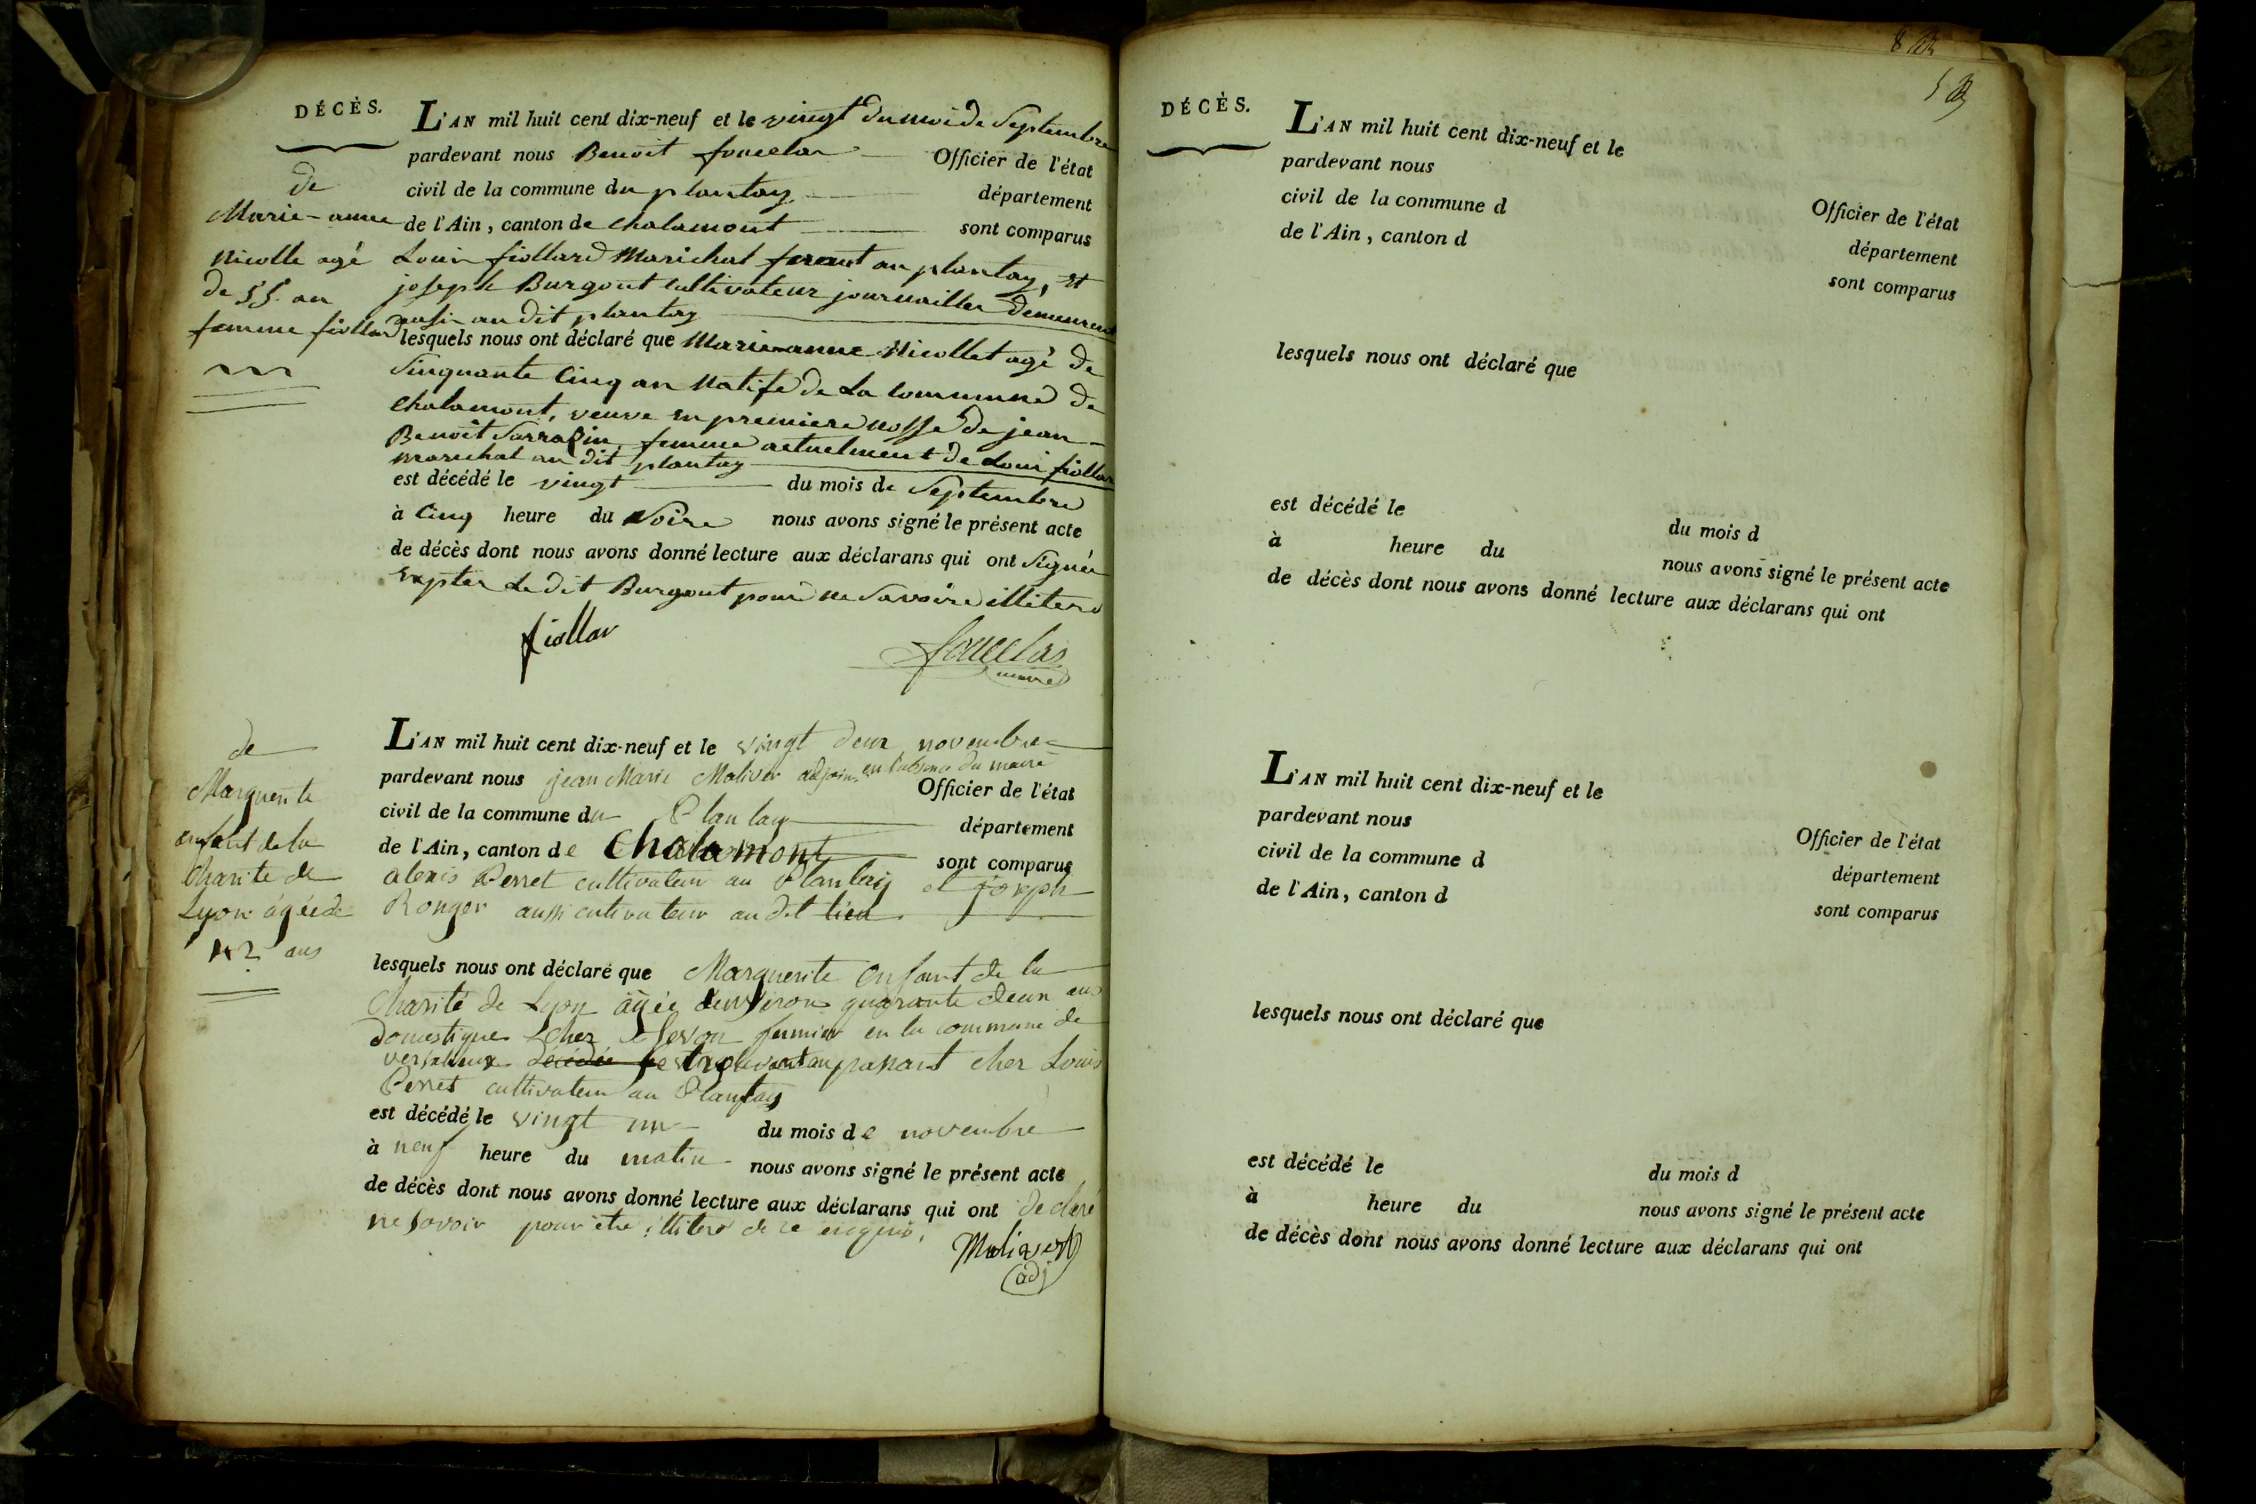 DÉCÈS.
de
Marie-anne
Nicolle agé
de 55. an
femme fiollard
L'AN mil huit cent dix-neuf et le vingt du moi de Septembre
pardevant nous Benoit foucelas Officier de l'état
civil de la commune du plantay département
de l'Ain, canton de chalamont sont comparus
Loui fiollard Marichal ferant au plantay, et
joseph Burgout cultivateur journailler demeurent
ausi au dit plantay
lesquels nous ont déclaré que Marie-anne Nicollet agé de
Sinquante Cinq an Natife de La commune de
Chalamont, veuve en premiere nosse de jean
Benoit Sarrazin, femme actuelment de Loui fiollar
marichal au dit plantay
est décédé le vingt du mois de Septembre
à Cinq heure du Soire nous avons signé le présent acte
de décès dont nous avons donné lecture aux déclarans qui ont Signée
expter Le dit Burgout pour ne Savoire illitere
fiollar
foucelas
maire
de
Marguerite
enfant de la
Charité de
Lyon âgée de
42 ans
L'AN mil huit cent dix-neuf et le vingt deux novembre
pardevant nous jean Marie Maliver adjoint en l'absence du maire Officier de l'état
civil de la commune du Plantay département
de l'Ain, canton de Chalamont sont comparus
alexis Perret cultivateur au Plantay et joseph
Ronger aussi cultivateur au dit lieu
lesquels nous ont déclaré que Marguerite Enfant de la
Charité de Lyon âgée d'environ quarante deux ans
domestique chez fermier en la commune de
versalieux décédée se trouvant en passant chez Louis
Perret cultivateur au Plantay
est décédé le vingt un du mois de novembre
à neuf heure du matin nous avons signé le présent acte
de décès dont nous avons donné lecture aux déclarans qui ont declaré
ne savoir pour etre illiteré de ce enquis.
Malivert
adj
DÉCÈS.
L'AN mil huit cent dix-neuf et le
pardevant nous Officier de l'état
civil de la commune d département
de l'Ain, canton d sont comparus
lesquels nous ont déclaré que
est décédé le du mois d
à heure du nous avons signé le présent acte
de décès dont nous avons donné lecture aux déclarans qui ont
L'AN mil huit cent dix-neuf et le
pardevant nous Officier de l'état
civil de la commune d département
de l'Ain, canton d sont comparus
lesquels nous ont déclaré que
est décédé le du mois d
à heure du nous avons signé le présent acte
de décès dont nous avons donné lecture aux déclarans qui ont